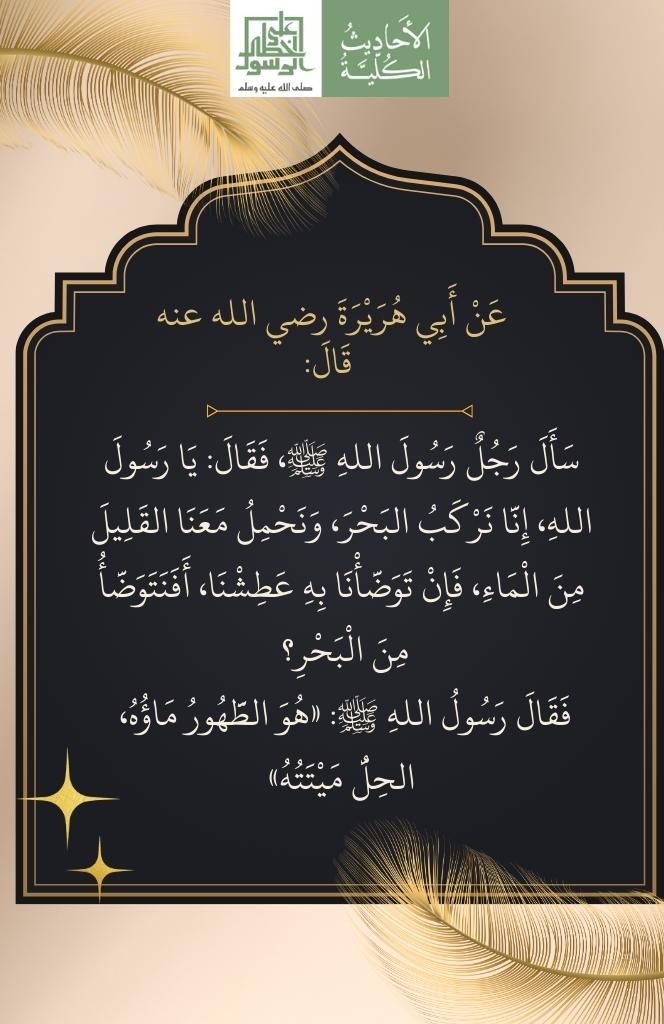 الأَحَادِيثُ
الكُلِّيَّةُ
على
خطى
الرسول
صلى الله عليه وسلم
عَنْ أَبِي هُرَيْرَةَ رضي الله عنه
قَالَ:
سَأَلَ رَجُلٌ رَسُولَ اللهِ ﷺ، فَقَالَ: يَا رَسُولَ
اللهِ، إِنّا نَرْكَبُ البَحْرَ، وَنَحْمِلُ مَعَنَا القَلِيلَ
مِنَ الْمَاءِ، فَإِنْ تَوَضّأْنَا بِهِ عَطِشْنَا، أَفَنَتَوَضّأُ
مِنَ الْبَحْرِ؟
فَقَالَ رَسُولُ اللهِ ﷺ: «هُوَ الطّهُورُ مَاؤُهُ،
الحِلُّ مَيْتَتُهُ»